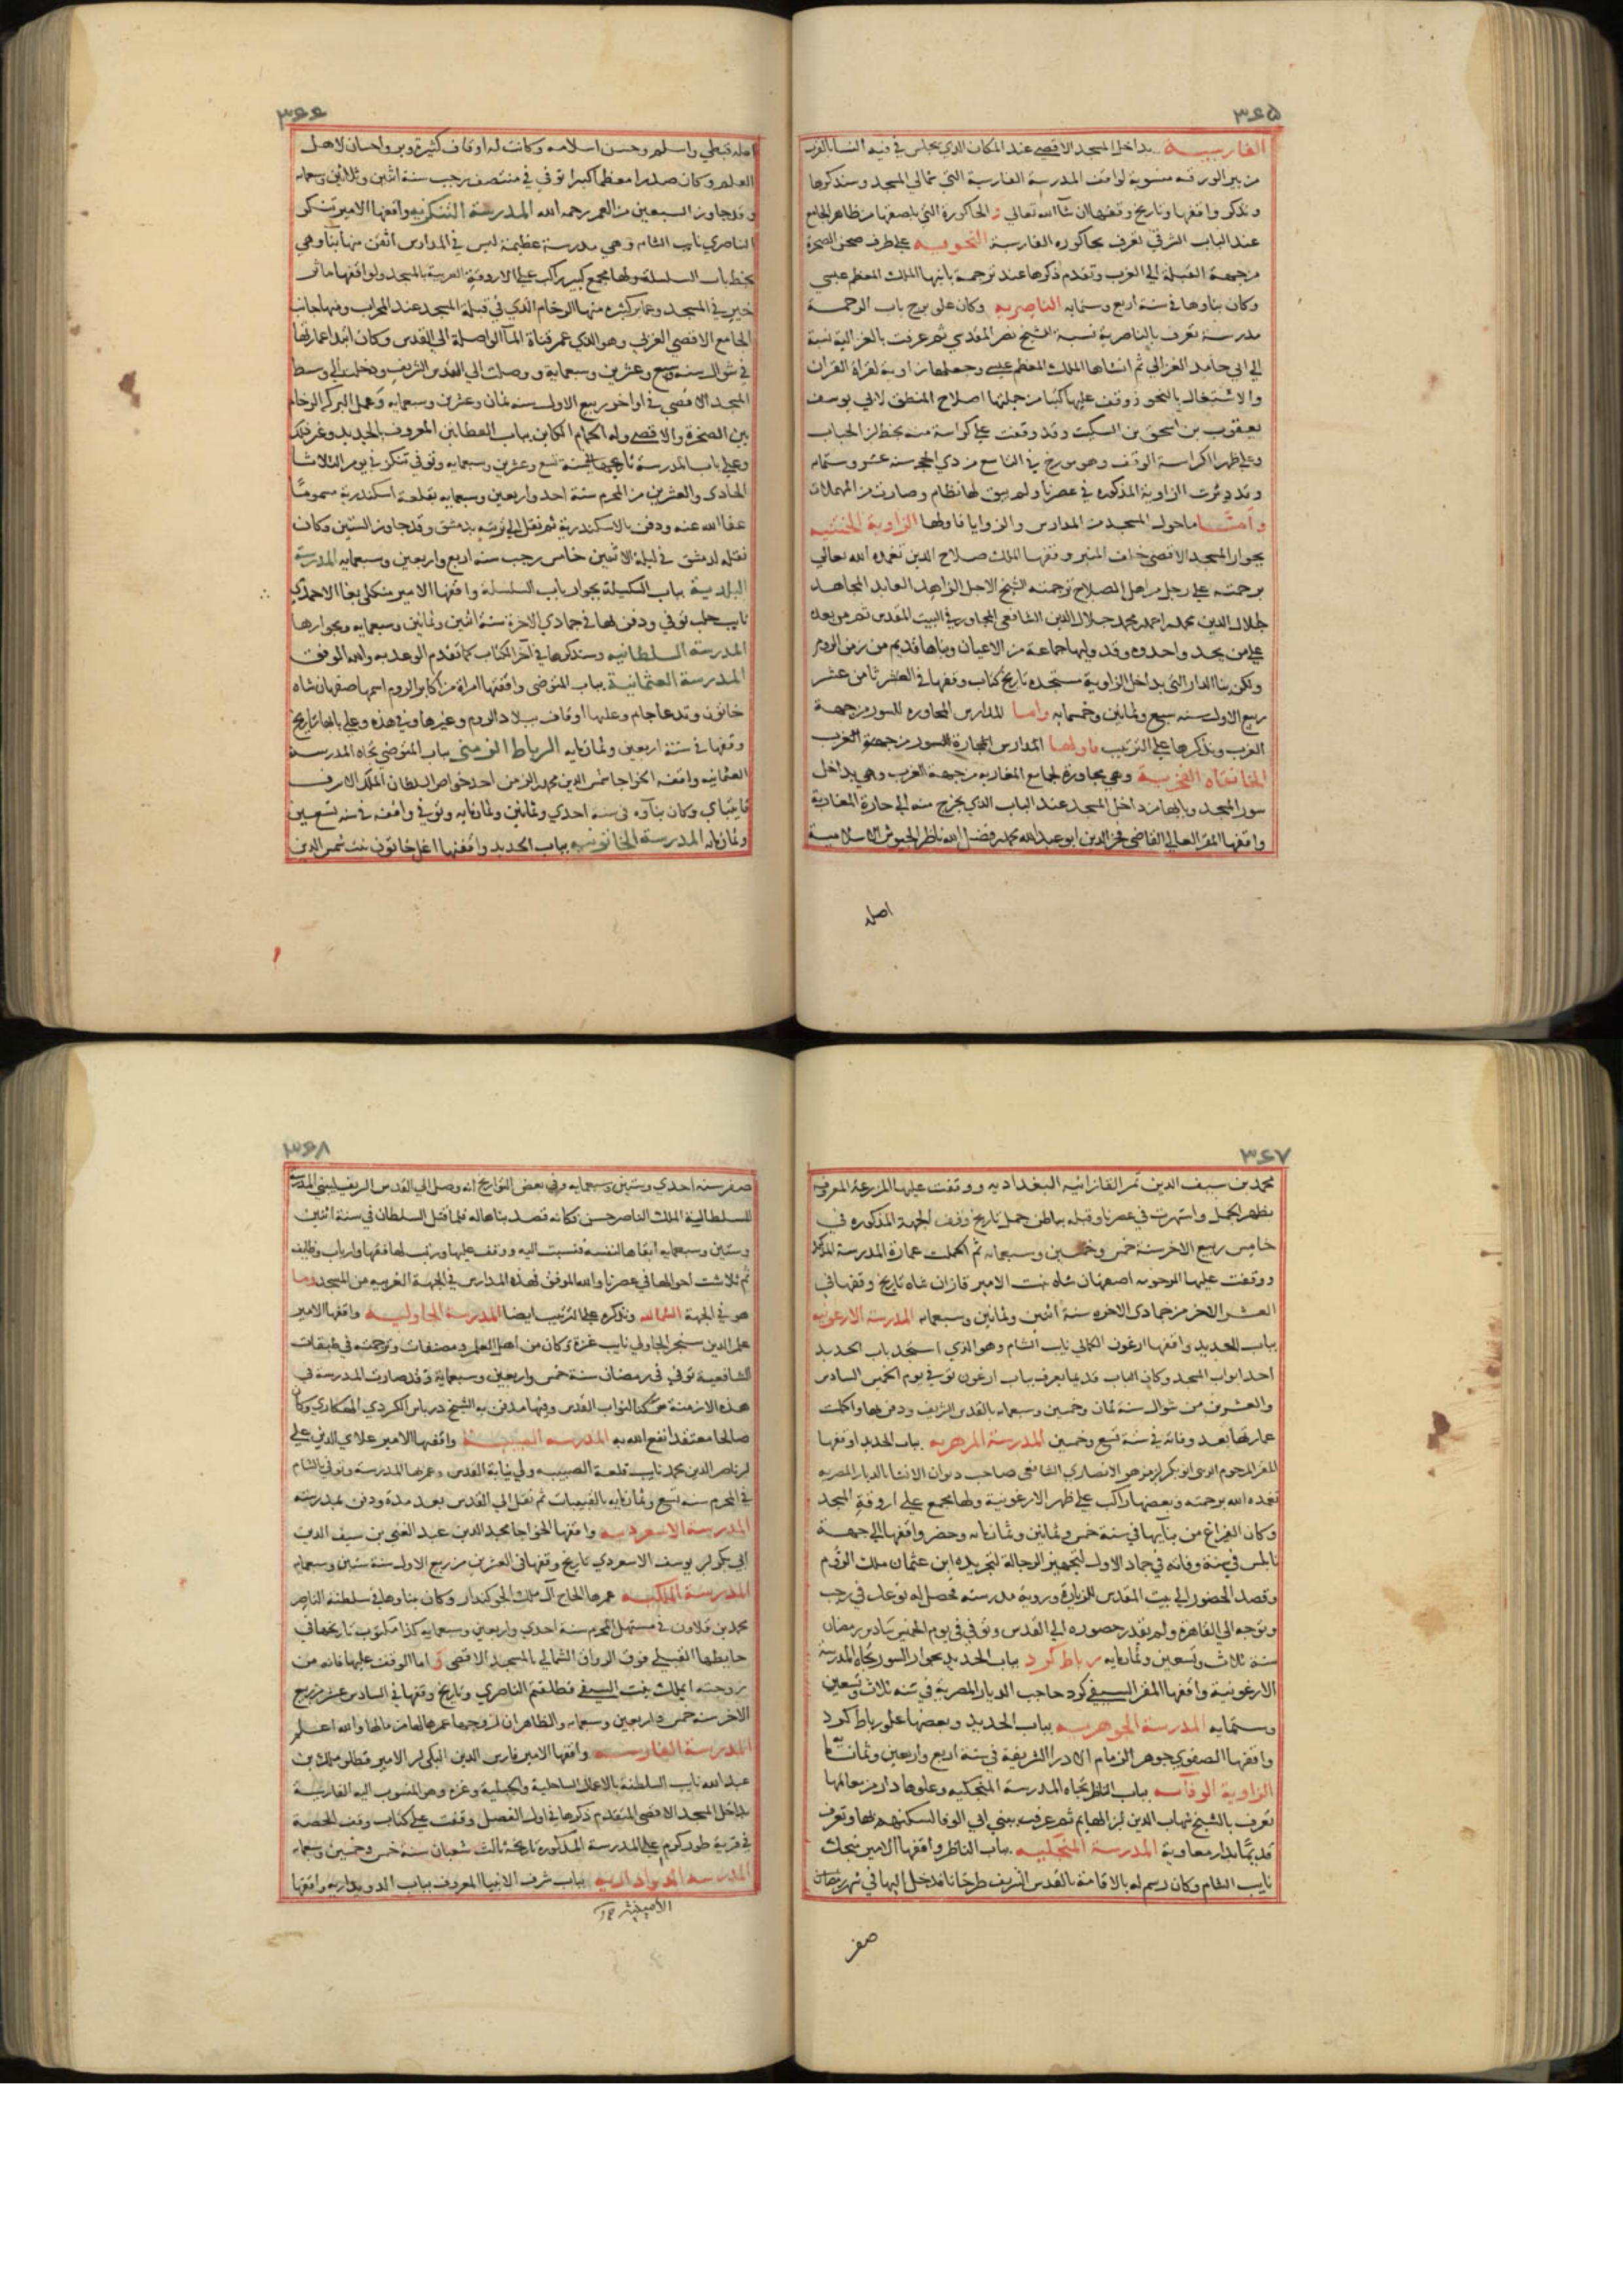 ٣٦٥
الفارسية بداخل المسجد الاقصى عند المكان الذي يجلس فيه النساء بالقرب
من بير الورقة منسوبة لواقف المدرسة الفارسية التي شمالي المسجد وسنذكرها
ونذكر واقفها وتاريخ وقفها ان شاء الله تعالي والحاكورة التي بلصقها من ظاهر الجامع
عند الباب الشرقي تعرف بحاكوره الفارسية النحويه على طرف صحن الصخرة
من جهة القبلة الي الغرب وتقدم ذكرها عند ترجمة بانيها الملك المعظم عيسي
وكان بناوها في سنة اربع وستمايه الناصريه وكان على برج باب الرحمة
مدرسة تعرف بالناصرية نسبة للشيخ نصر المقدسي ثم عرفت بالغزالية نسبة
الي ابي حامد الغزالي ثم انشاها الملك المعظم عيسى وجعلها زاوية لقراة القران
والاشتغال بالنحو ووقف عليها كتبا من جملتها اصلاح المنطق لابي يوسف
يعقوب بن اسحق بن السكيت وقد وقفت على كراسة منه بخط ابن الخشاب
وعلي ظهر الكراسة الوقف وهو مورخ في التاسع من ذي الحجه سنه عشر وستمايه
وقد دثرت الزاوية المذكوره في عصرنا ولم يبق لها نظام وصارت من المهملات
وامـا ما حول المسجد من المدارس والزوايا فاولها الزاوية الختنيه
بجوار المسجد الاقصى خلف المنبر وقفها الملك صلاح الدين تغمده الله تعالي
برحمته على رجل من اهل الصلاح ترجمته الشيخ الاجل الزاهد العابد المجاهد
جلال الدين محمد بن احمد بن محمد جلال الدين الشافعي المجاور في البيت المقدس ثم من بعده
علي من يحد واحدوه وقد وليها جماعة من الاعيان وبناها قديم من زمن الروم
ولكن بنا الدار التي بداخل الزاوية مستجده تاريخ كتاب وقفها في العشر ثامن عشر
ربيع الاول سنه سبع وثمانين وخمسمايه واما المدارس المجاوره للسور من جهة
الغرب ونذكرها علي الترتيب فاولها المدارس المجاورة للسور من جهة الغرب
الخانقاه الفخرية وهي مجاورة لجامع المغاربه من جهة الغرب وهي بداخل
سور المسجد وبابها من داخل المسجد عند الباب الذي يخرج منه الي حارة المغاربة
واقفها المقر العالي القاضي فخر الدين ابو عبد الله محمد بن فضل الله ناظر الجيوش الاسلامية
اصله
٣٦٦
اصله قبطي واسلم وحسن اسلامه وكانت له اوقاف كثيرة وبر واحسان لاهل
العلم وكان صدرا معظما كبيرا توفي في منتصف رجب سنة اثنين وثلاثين وسبعمايه
وقد جاوز السبعين من العمر رحمه الله المدرسة التنكزيه واقفها الامير تنكز
الناصري نايب الشام وهي مدرسة عظيمة ليس في المدارس اتقن منها بنا وهي
بخط باب السلسلة ولها مجمع كبير راكب على الاروقة الغربية بالمسجد ولواقفها ماثر
خير في المسجد وعماير كثيره منها الرخام الذي في قبلة المسجد عند المحراب ومنها جانب
الجامع الاقصى الغربي وهو الذي عمر قناة الما الواصلة الي القدس وكان ابتدا عمارتها
في شوال سنه سبع وعشرين وسبعماية ووصلت الي القدس الشريف ودخلت الي وسط
المسجد الاقصى في اواخر ربيع الاول سنه ثمان وعشرين وسبعمايه وعمل البركه الرخام
بين الصخرة والاقصى وله الحمام الكاين بباب القطانين المعروف بالجديد وغير ذلك
وعلى باب المدرسة تاريخها سنة تسع وعشرين وسبعمايه وتوفي تنكز في يوم الثلاثا
الحادي والعشرين من المحرم سنة احد واربعين وسبعمايه بقلعة اسكندرية مسموما
عفا الله عنه ودفن بالاسكندرية ثم نقل الي تربته بدمشق وقد جاوز الستين وكان
نقله لدمشق في ليلة الاثنين خامس رجب سنه اربع واربعين وسبعمايه المدرسة
البلدية بباب السكينة بجوار باب السلسلة واقفها الامير منكلي بغا الاحمدي
نايب حلب توفي ودفن بها في جمادي الاخرة سنة اثنين وثمانين وسبعمايه وبجوارها
المدرسة السلطانيه وسنذكرها في اخر الكتاب كما تقدم الوعد به والله الموفق
المدرسة العثمانية بباب المتوضى واقفتها امراة من اكابر الروم اسمها اصفهان شاه
خاتون وتدعا خانم وعليها اوقاف ببلاد الروم وغيرها وفي هذه وعلي بابها تاريخ
وقفها في سنة اربعين وثمانمايه الرباط الزمني بباب المتوضي تجاه المدرسة
العثمانيه واقفه الخواجا شمس الدين محمد بن الزمن احد خواص السلطان الملك الاشرف
قايتباي وكان بناوه في سنة احدي وثمانين وثمانمايه وتوفي واقفه في سنه تسعين
وثمانمايه المدرسة الخاتونيه بباب الحديد واقفتها اغل خاتون بنت شمس الدين
٣٦٧
محمد بن سيف الدين تمر القازانيه البغداديه ووقفت عليها المزرعة المعروفه
بظهر الجمل واشتهرت في عصرنا وقبله بباطن جمل تاريخ وقف الجهة المذكوره في
خامس ربيع الاخر سنة خمس وخمسين وسبعمايه ثم اكملت عمارة المدرسة المذكوره
ووقفت عليها المرحومه اصفهان شاه بنت الامير قازان شاه تاريخ وقفها في
العشر الاخر من جمادى الاخره سنة اثنين وثمانين وسبعمايه المدرسة الارغونيه
بباب الحديد واقفها ارغون الكاملي نايب الشام وهو الذي استجد باب الحديد
احد ابواب المسجد وكان الباب قديما يعرف بباب ارغون توفي في يوم الخميس السادس
والعشرين من شوال سنه ثمان وخمسين وسبعمايه بالقدس الشريف ودفن بها واكملت
عمارتها بعد وفاته في سنة تسع وخمسين المدرسة المزهريه بباب الحديد اوقفها
المقر المرحوم الزيني ابو بكر بن مزهر الانصاري الشافعي صاحب ديوان الانشا بالديار المصريه
تغمده الله برحمته وبعضها راكب على ظهر الارغونية ولها مجمع علي اروقة المسجد
وكان الفراغ من بنايها في سنة خمس وثمانين وثمانمايه وحضر واقفها الي جهة
نابلس في سنة وفاته في جماد الاول لتجهيز الرجالة لتجريدة ابن عثمان ملك الروم
وقصد الحضور الي بيت المقدس للزيارة وروية مدرسته فحصل له توعك في رجب
وتوجه الي القاهرة ولم يقدر حضوره الي القدس وتوفي في يوم الخميس سادس رمضان
سنة ثلاث وتسعين وثمانمايه رباط كرد بباب الحديد بجوار السور تجاه المدرسة
الارغونية واقفها المقر السيفي كرد صاحب الديار المصرية في سنه ثلاث وتسعين
وستمايه المدرسة الجوهريه بباب الحديد وبعضها علو رباط كرد
واقفها الصفوي جوهر الزمام الادر الشريفة في سنة اربع واربعين وثمانمايه
الزاوية الوفاييه بباب الناظر تجاه المدرسة المنجكيه وعلوها دار من معالمها
تعرف بالشيخ شهاب الدين بن الهايم ثم عرفت ببني ابي الوفا لسكنهم بها وتعرف
قديما بدار معاوية المدرسة المنجكيه بباب الناظر واقفها الامير منجك
نايب الشام وكان رسم له بالاقامة بالقدس الشريف طرخانا فدخل اليها في شهر
صفر
٣٦٨
صفر سنه احدي وستين وسبعمايه وفي بعض التواريخ انه وصل الي القدس الشريف ليبني المدرسة
للسلطان الملك الناصر حسن وكانه قصد بناها له فلما قتل السلطان في سنة اثنين
وستين وسبعمايه ابقاها لنفسه فنسبت اليه ووقف عليها ورتب لها فقها وارباب وظايف
ثم تلاشت احوالها في عصرنا والله الموفق فهذه المدارس في الجهة الغربيه من المسجد واما
هو في الجهة الشماليه ونذكره على الترتيب ايضا المدرسة الجاوليه واقفها الامير
علم الدين سنجر الجاولي نايب غزة وكان من اهل العلم وله مصنفات وترجمته في طبقات
الشافعية توفي في رمضان سنة خمس واربعين وسبعماية وقد صارت المدرسة في
هذه الازمنة مسكنا لنواب القدس وفيها مدفن به الشيخ درباس الكردي الهكاري وكان
صالحا معتقدا نفع الله به المدرسه الصبيبية واقفها الامير علاي الدين علي
ابن ناصر الدين محمد نايب قلعة الصبيبه ولي نيابة القدس وعمر بها المدرسة وتوفي بالشام
في المحرم سنه تسع وثمانمايه بالقبيبات ثم نقل الي القدس بعد مدة ودفن بمدرسته
المدرسة الاسعرديه واقفها الخواجا مجد الدين عبد الغني بن سيف الدين
ابي بكر بن يوسف الاسعردي تاريخ وقفها في العشرين من ربيع الاول سنة ستين وسبعمايه
المدرسة الملكيه عمرها الحاج آل ملك الجوكندار وكان بناوها في سلطنة الناصر
محمد بن قلاون في مستهل المحرم سنة احدي واربعين وسبعمايه كذا مكتوب تاريخها في
حايطها القبلي فوق الرواق الشمالي بالمسجد الاقصى واما الوقف عليها فانه من
زوجته ايملك بنت السيفي قطلقتم الناصري وتاريخ وقفها في السادس عشر من ربيع
الاخر سنه خمس واربعين وسبعمايه والظاهر ان زوجها عمرها لها من مالها والله اعلم
المدرسة الفارسيه واقفها الامير فارس الدين البكي بن الامير قطلو ملك بن
عبد الله نايب السلطنة بالاعمال الساحلية والجبلية وغزه وهو المنسوب اليه الفارسية
بداخل المسجد الاقصى المتقدم ذكرها في اول الفصل وقفت على كتاب وقف الحصة
في قرية طور كرم على المدرسة المذكوره تاريخه ثالث شعبان سنة خمس وخمسين وسبعمايه
المدرسه الدواداريه بباب شرف الانبيا المعروف بباب الدويداريه واقفها